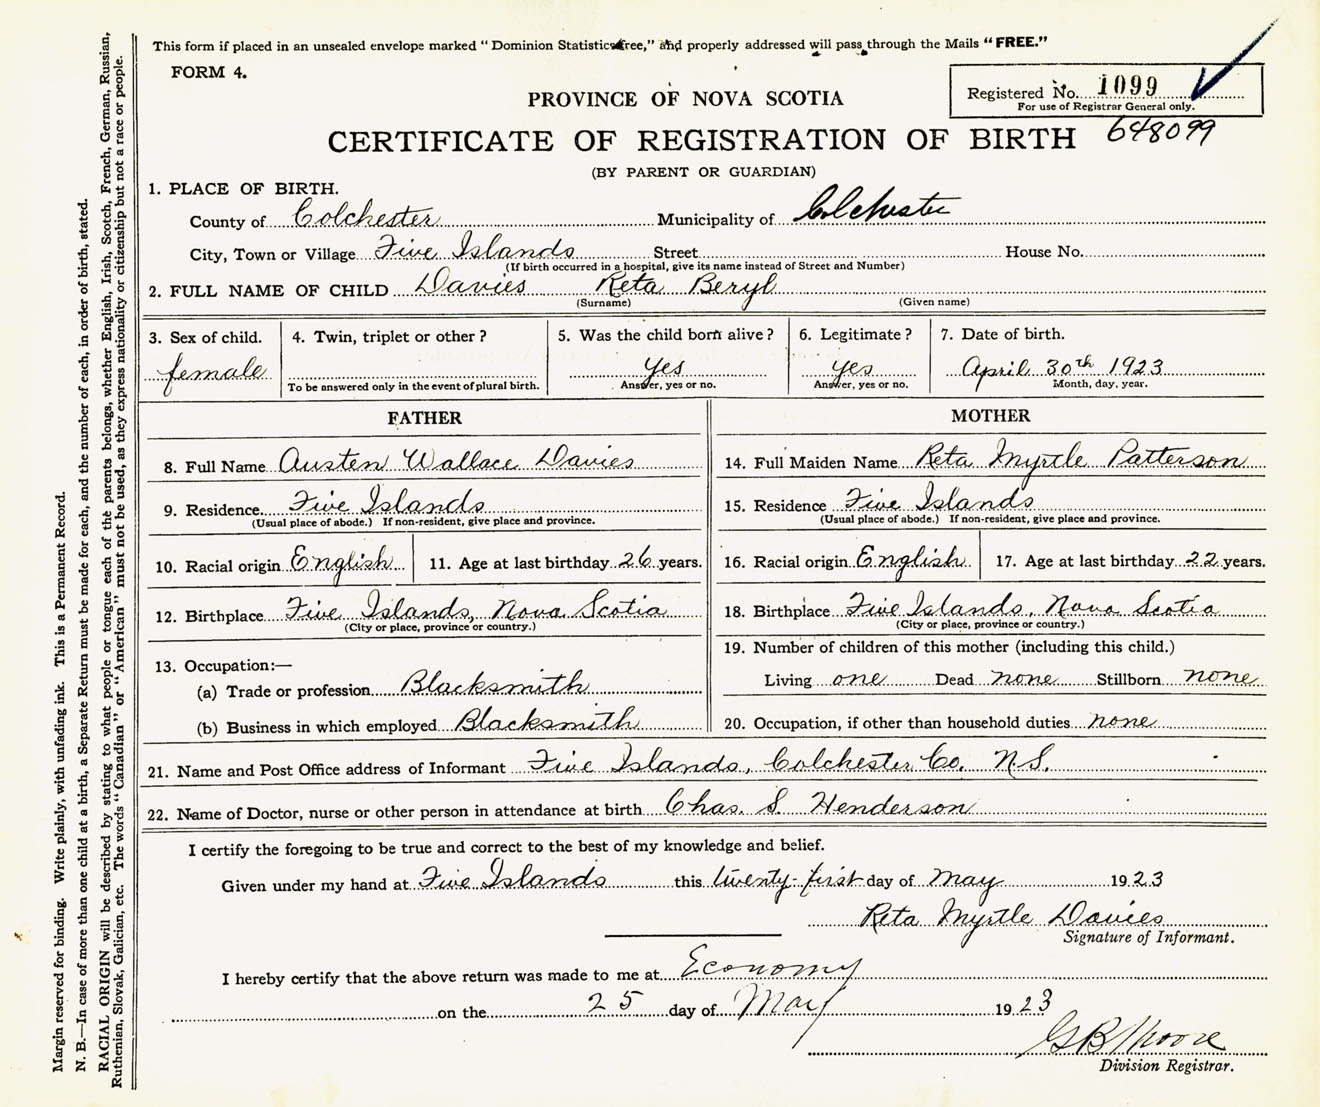 This form if placed in an unsealed envelope marked "Dominion Statistics free," and properly addressed will pass through the Mails "FREE."
FORM 4.
Registered No. 1099
For use of Registrar General only.
PROVINCE OF NOVA SCOTIA
CERTIFICATE OF REGISTRATION OF BIRTH 648099
(BY PARENT OR GUARDIAN)
1. PLACE OF BIRTH.
County of Colchester Municipality of Colchester
City, Town or Village Five Islands Street House No.
(If birth occurred in a hospital, give its name instead of Street and Number)
2. FULL NAME OF CHILD Davies Reta Beryl
(Surname) (Given name)
3. Sex of child. 4. Twin, triplet or other? 5. Was the child born alive? 6. Legitimate? 7. Date of birth.
female yes yes April 30th 1923
To be answered only in the event of plural birth. Answer, yes or no. Answer, yes or no. Month, day, year.
FATHER MOTHER
8. Full Name Austen Wallace Davies 14. Full Maiden Name Reta Myrtle Patterson
9. Residence. Five Islands 15. Residence Five Islands
(Usual place of abode.) If non-resident, give place and province. (Usual place of abode.) If non-resident, give place and province.
10. Racial origin English 11. Age at last birthday 26 years. 16. Racial origin English 17. Age at last birthday 22 years.
12. Birthplace Five Islands, Nova Scotia 18. Birthplace Five Islands, Nova Scotia
(City or place, province or country.) (City or place, province or country.)
13. Occupation:— 19. Number of children of this mother (including this child.)
(a) Trade or profession Blacksmith Living one Dead none Stillborn none
(b) Business in which employed Blacksmith 20. Occupation, if other than household duties none
21. Name and Post Office address of Informant Five Islands, Colchester Co. N.S.
22. Name of Doctor, nurse or other person in attendance at birth Chas. S. Henderson
I certify the foregoing to be true and correct to the best of my knowledge and belief.
Given under my hand at Five Islands this twenty-first day of May 1923
Reta Myrtle Davies
Signature of Informant.
I hereby certify that the above return was made to me at Economy
on the 25 day of May 1923
G B Moore
Division Registrar.
Margin reserved for binding. Write plainly, with unfading ink. This is a Permanent Record.
N. B.—In case of more than one child at a birth, a Separate Return must be made for each, and the number of each, in order of birth, stated.
RACIAL ORIGIN will be described by stating to what people or tongue each of the parents belongs, whether English, Irish, Scotch, French, German, Russian,
Ruthenian, Slovak, Galician, etc. The words "Canadian" or "American" must not be used, as they express nationality or citizenship but not a race or people.